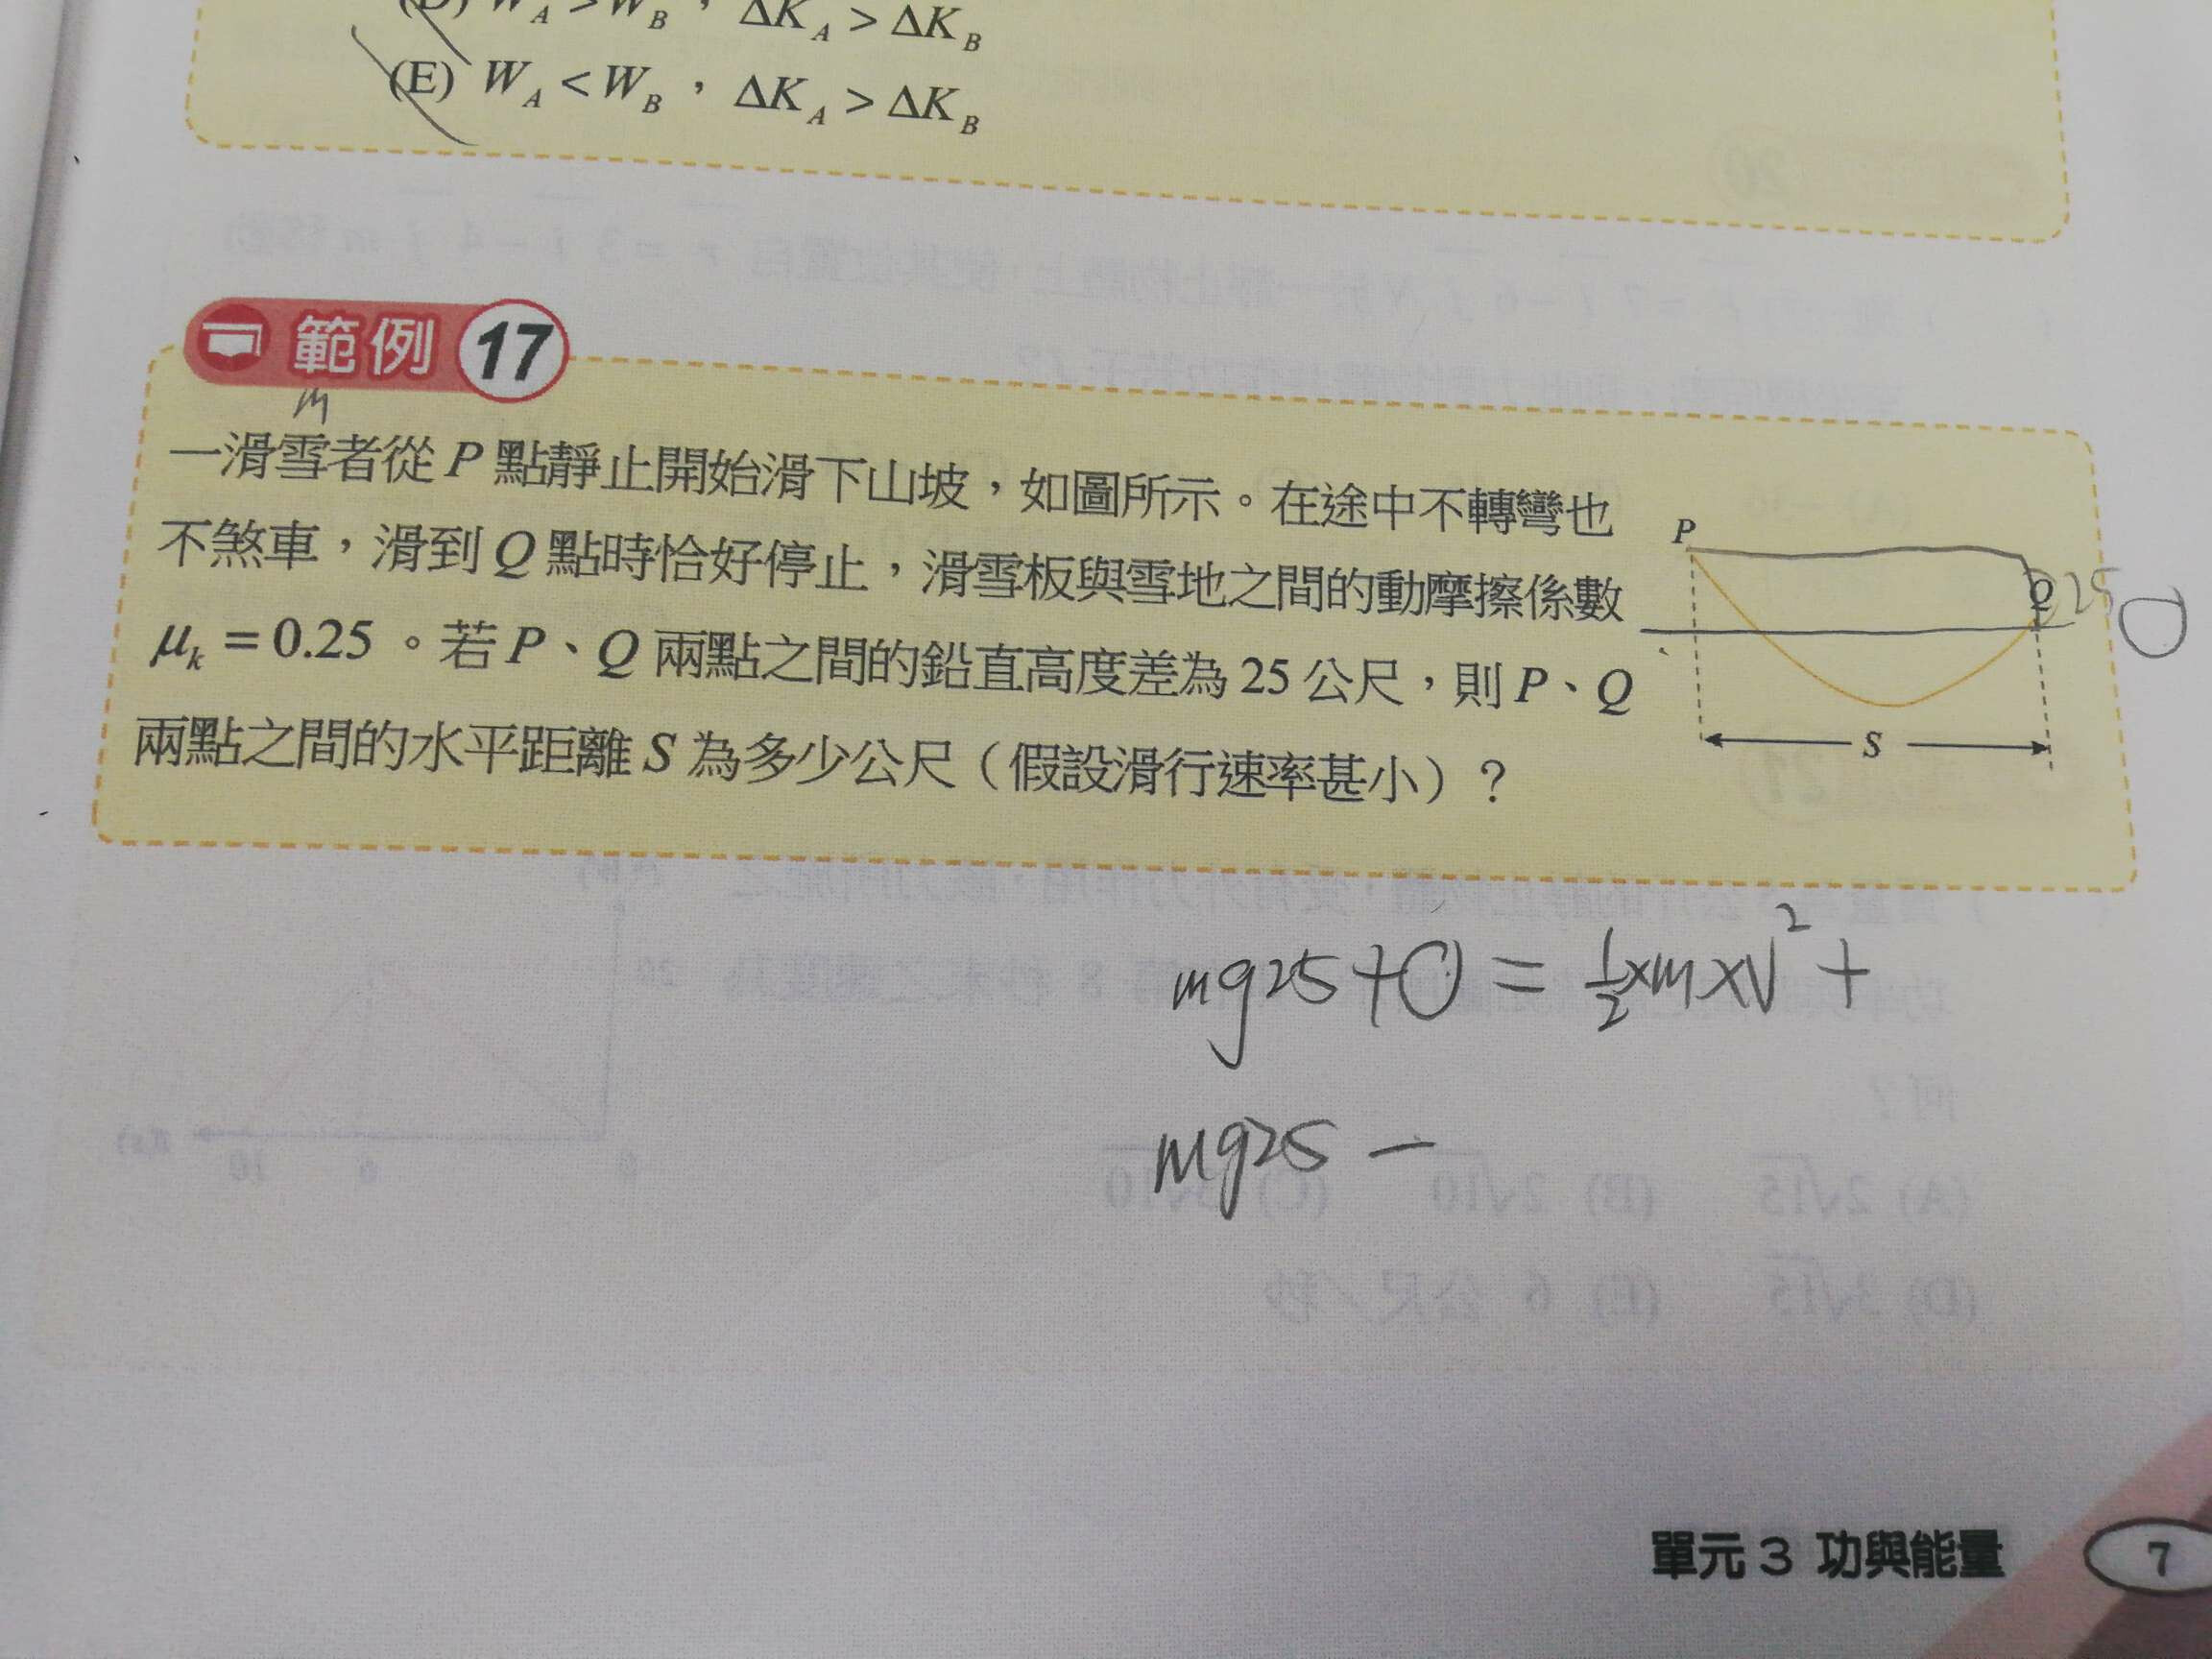 (D) W_A > W_B，ΔK_A > ΔK_B
(E) W_A < W_B，ΔK_A > ΔK_B
範例 17
m
一滑雪者從 P 點靜止開始滑下山坡，如圖所示。在途中不轉彎也
不煞車，滑到 Q 點時恰好停止，滑雪板與雪地之間的動摩擦係數
μ_k = 0.25。若 P、Q 兩點之間的鉛直高度差為 25 公尺，則 P、Q
兩點之間的水平距離 S 為多少公尺（假設滑行速率甚小）？
P
Q 25
0
S
mg25+0 = 1/2×m×V²+
mg25 −
單元 3 功與能量 7